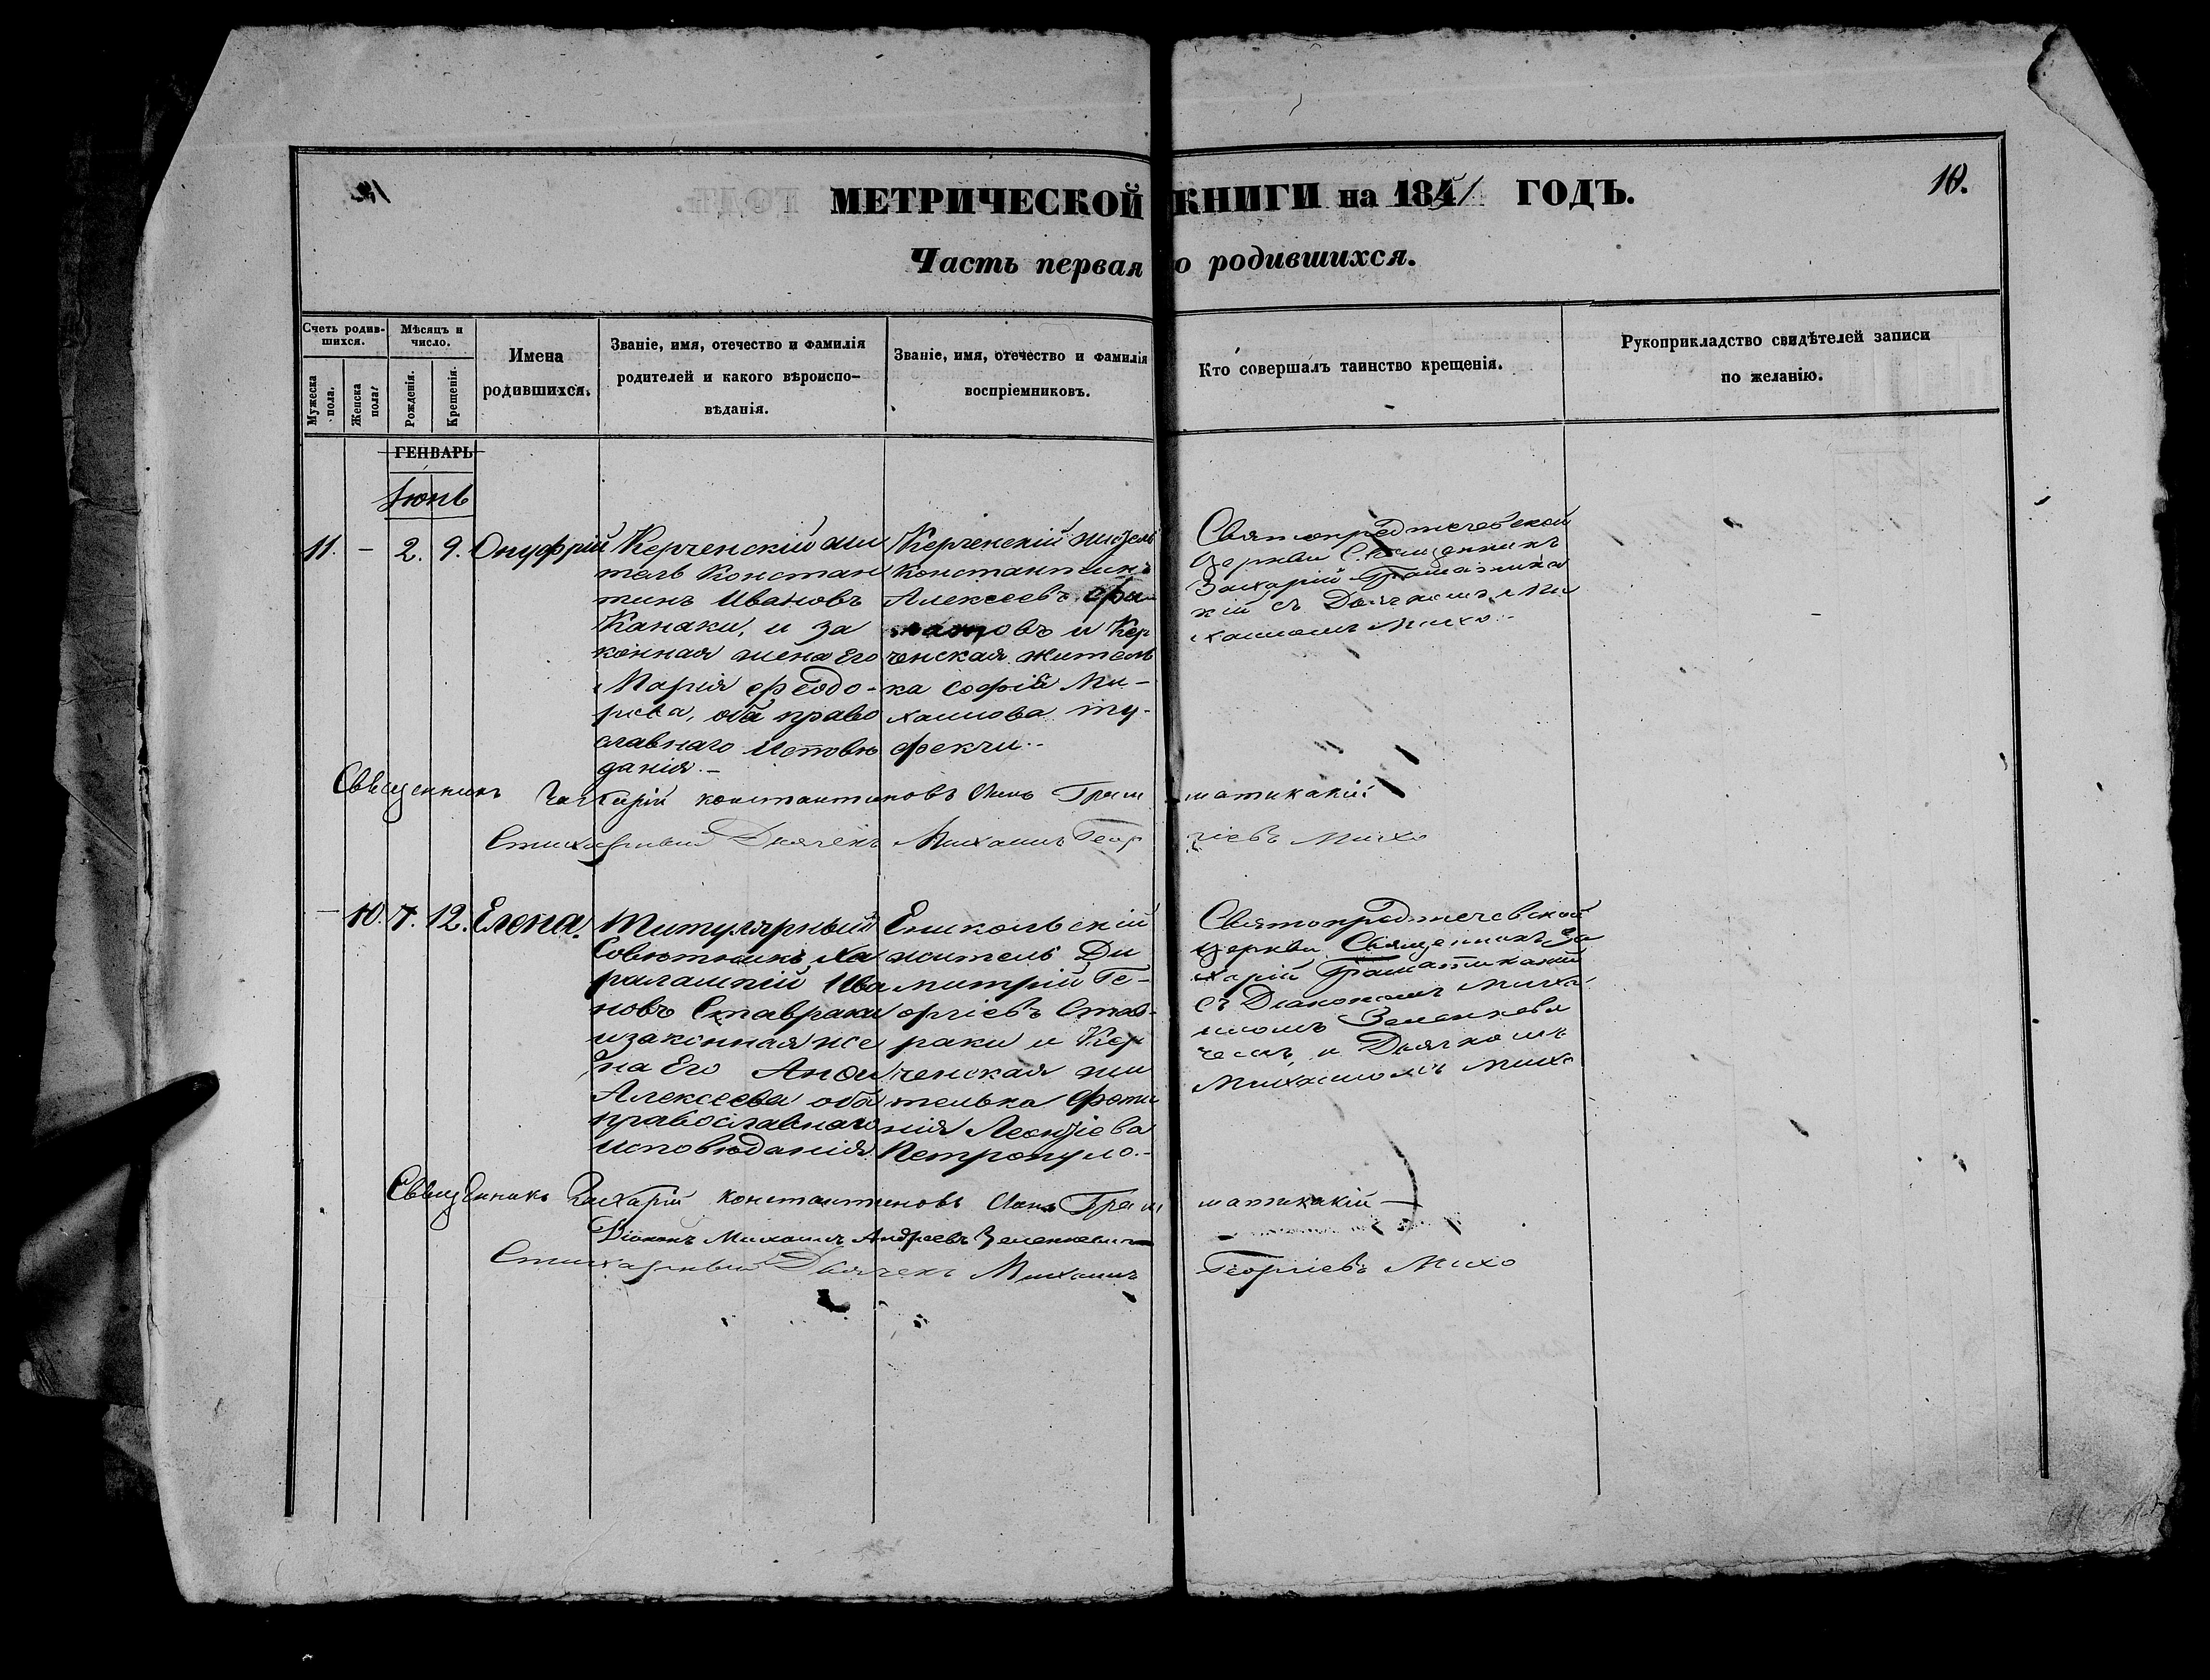 МЕТРИЧЕСКОЙ КНИГИ на 1851 ГОДЪ.
10.
Часть первая о родившихся.
Счетъ родив-
шихся.
Мужеска
пола.
Женска
пола.
Мѣсяцъ и
число.
Рожденія.
Крещенія.
Имена
родившихся.
Званіе, имя, отечество и фамилія
родителей и какого вѣроиспо-
вѣданія.
Званіе, имя, отечество и фамилія
воспріемниковъ.
Кто совершалъ таинство крещенія.
Рукоприкладство свидѣтелей записи
по желанію.
ГЕНВАРЬ
Іюнь
11. – 2. 9. Онуфрій
Керченскій жи
тель Констан
тинъ Ивановъ
Канаки, и за
конная жена Его
Марія Феодо-
рова, оба право
славнаго исповѣ
данія.–
Керченскій житель
Константинъ
Алексеевъ Фи
овъ и Кер
ченская житель
ка Софія Ми-
хаилова Ту-
фекчи.-
Святопредтечевской
церкви Священникъ
Захарій Граматика
кій съ Дьячкомъ Ми
хаиломъ Михо.-
Священникъ Захарій Константиновъ Сынъ Грам матикакій
Стихарный Дьячекъ Михаилъ Геор гіевъ Михо
– 10. 7. 12. Елена.
Титулярный
Совѣтникъ Ха
ралампій Ива
новъ Ставраки
и законная же
на Его
Алексеева оба
православнаго
исповѣданія
Еникольскій
житель Ди
митрій Ге-
оргіевъ Став-
раки и Кер
ченская жи
телька Фоти
нія Леонтіева
Петропуло.-
Святопредтечевской
церкви Священникъ За
харій Граматикакій
съ Діакономъ Миха
иломъ Зеленкеви
чемъ и Дьячкомъ
Михаиломъ Михо
Священникъ Захарій Константиновъ Сынъ Грам матикакій –
Діаконъ Михаилъ Андреевъ Зеленкевичъ
Стихарный Дьячекъ Михаилъ Георгіевъ Михо